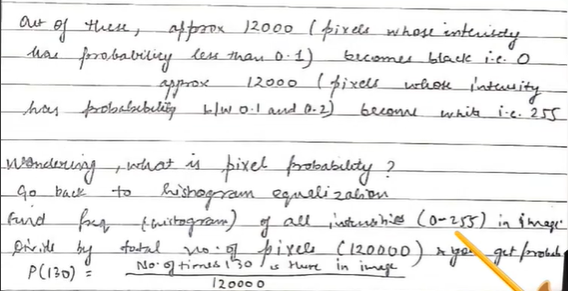 Out of these, approx 12000 (pixels whose intensity
has probability less than 0.1) becomes black i.e. 0
approx 12000 (pixels whose intensity
has probabebility b/w 0.1 and 0.2) become white i.e. 255
Wondering, what is pixel probability?
Go back to histogram equalization
Find freq (histogram) of all intensities (0-255) in image
Divide by total no. of pixels (120000) & you get probab
P(130) = No. of times 130 is there in image
120000